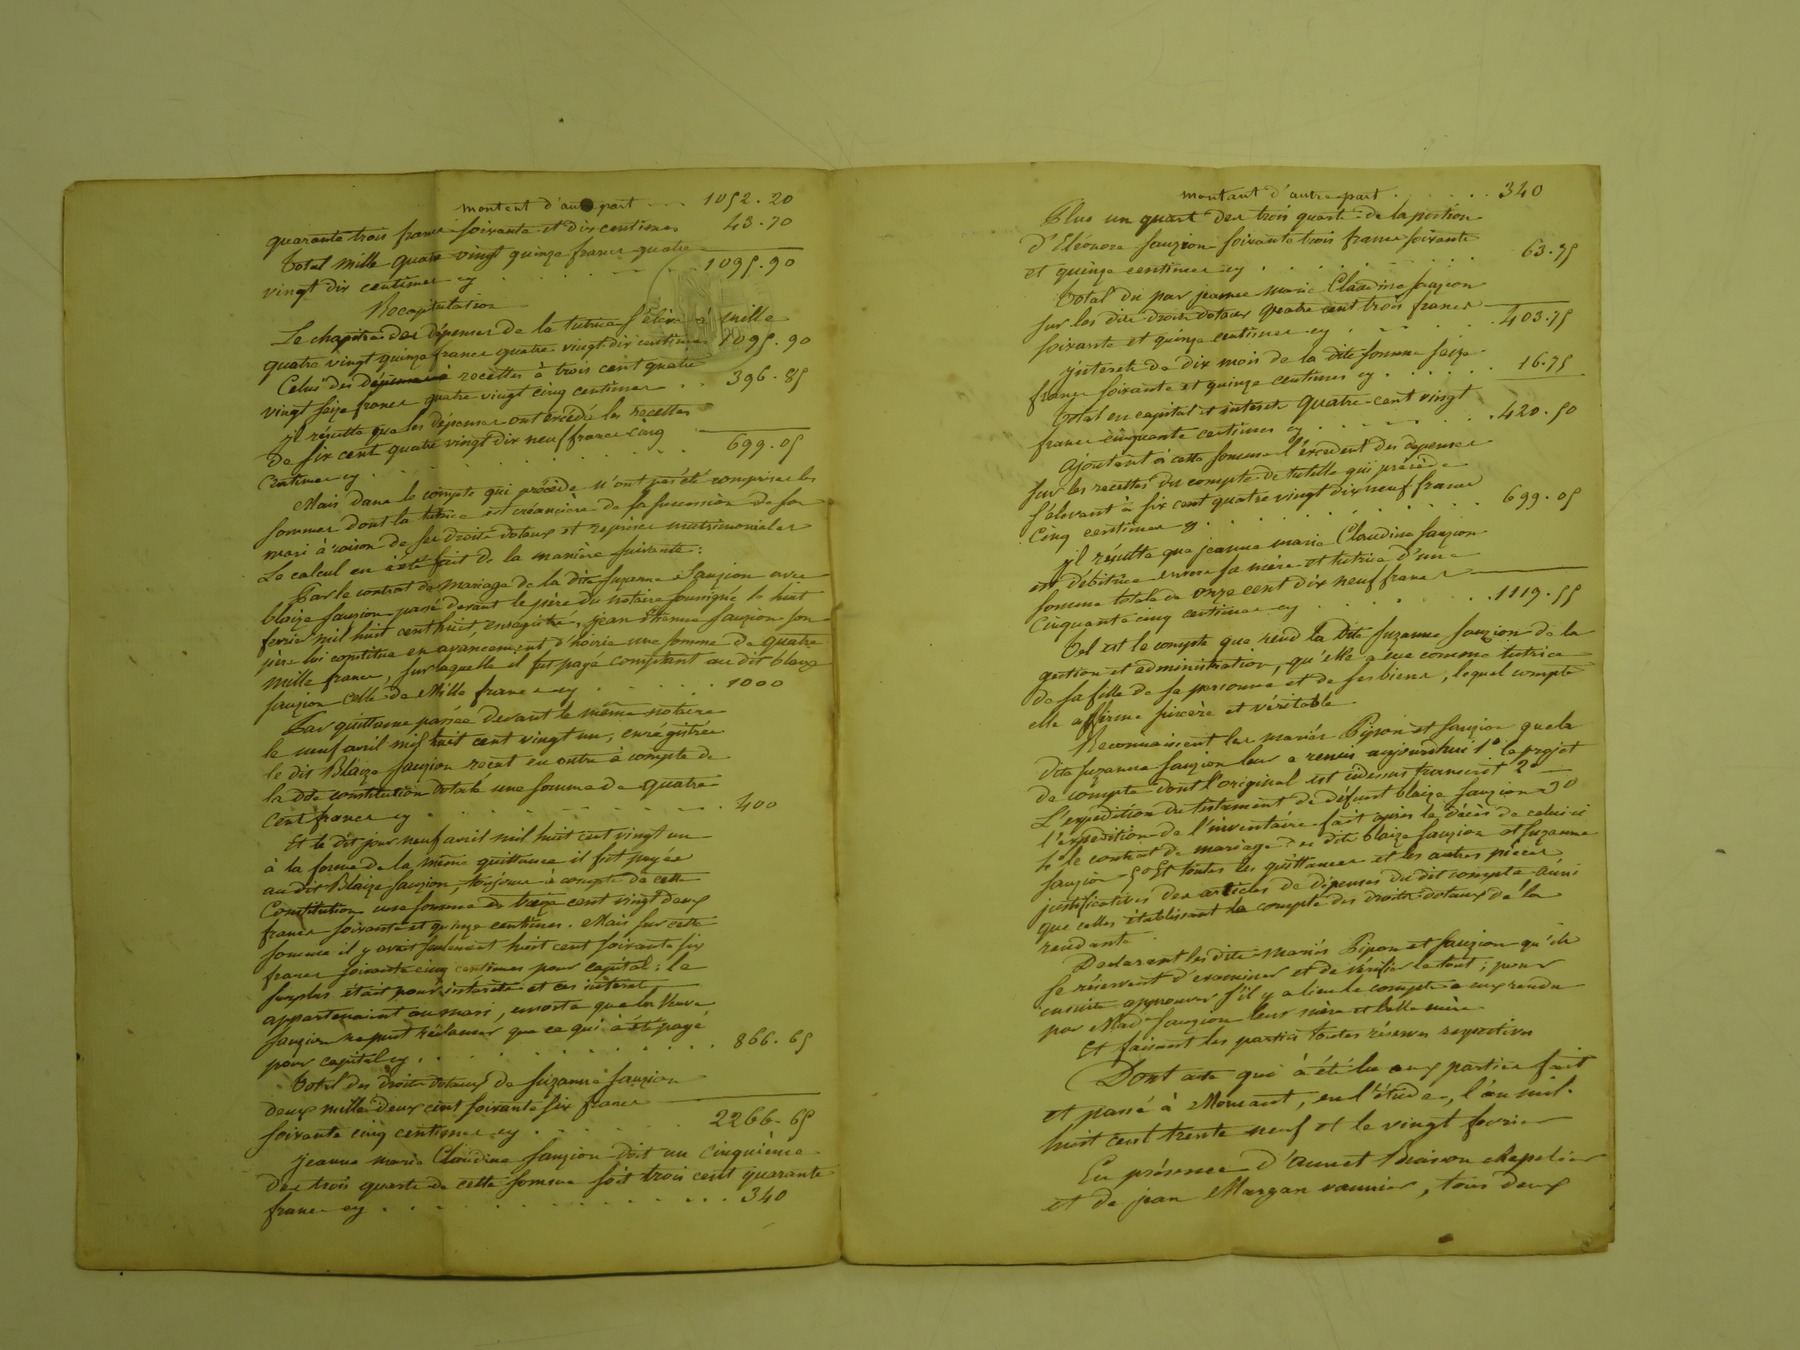 montant d'autre part 1052.20
quarante trois francs soixante et dix centimes 43.70
Total mille quatre vingt quinze francs quatre
vingt dix centimes cy 1095.90
Recapitulation
Le chapitre des dépenses de la tutrice s'élève à mille
quatre vingt quinze francs quatre vingt dix centimes 1095.90
Celui des recettes à trois cent quatre
vingt seize francs quatre vingt cinq centimes 396.85
yl résulte que les dépenses ont excédé les recettes
de six cent quatre vingt dix neuf francs cinq
centimes cy 699.05
Mais dans le compte qui précède n'ont pas été comprises les
sommes dont la tutrice est créancière de la succession de son
mari à raison de ses droits dotaux et reprises matrimoniales
Le calcul en a été fait de la manière suivante :
Par le contrat de mariage de la dite Suzanne Sauzion avec
blaize sauzion passé devant le père du notaire soussigné le huit
fevrier mil huit cent huit, enregistré, jean Etienne Sauzion son
père lui constitua en avancement d'hoirie une somme de quatre
mille francs, sur laquelle il fut payé comptant au dit blaize
sauzion celle de Mille francs cy 1000
Par quittance passée devant le même notaire
le neuf avril mil huit cent vingt un, enrégistrée
le dit Blaize Sauzion recut en outre à compte de
la dite constitution dotale une somme de quatre
cent francs cy 400
Et le dit jour neuf avril mil huit cent vingt un
à la forme de la même quittance il fut payée
au dit Blaize Sauzion, toujours à compte de cette
Constitution une somme de treize cent vingt deux
francs soixante et quinze centimes. Mais sur cette
somme il y avait seulement huit cent soixante six
francs soixante cinq centimes pour capital ; le
surplus était pour intérêts et ces intérêts
appartenaient au mari, ensorte que la Veuve
Sauzion ne peut réclamer que ce qui à été payé
pour capital cy 866.65
Total des droits dotaux de Suzanne Sauzion
deux mille deux cent soixante six francs
soixante cinq centimes cy 2266.65
jeanne marie Claudine Sauzion doit un cinquième
des trois quarts de cette somme soit trois cent quarante
francs cy 340
montant d'autre part 340
Plus un quart des trois quarts de la portion
d'Eléonore Sauzion soixante trois francs soixante
et quinze centimes cy 63.75
Total du par jeanne marie Claudine Sauzion
sur les dits droits dotaux quatre cent trois francs
soixante et quinze centimes cy 403.75
yntérets de dix mois de la dite somme seize
francs soixante et quinze centimes cy 16.75
Total en capital et intérets quatre cent vingt
francs cinquante centimes cy 420.50
Ajoutant à cette somme l'excédent des dépenses
sur les recettes du compte de tutelle qui précède
s'élevant à six cent quatre vingt dix neuf francs
Cinq centimes cy 699.05
yl résulte que jeanne marie Claudine Sauzion
est débitrice envers sa mère et tutrice d'une
somme totale de onze cent dix neuf francs
Cinquante cinq centimes cy 1119.55
Tel est le compte que rend la dite Suzanne Sauzion de la
gestion et administration, qu'elle a eue comme tutrice
de sa fille de sa personne et de ses biens, lequel compte
elle affirme sincère et véritable
Reconnaissent les mariés Pipon et Sauzion que la
dite Suzanne Sauzion leur a remis aujourd'hui 1° le projet
de compte dont l'original est cidessus transcrit 2°
L'expédition du testament de défunt blaize Sauzion 3°
l'expédition de l'inventaire fait après le décès de celui ci
4° le contrat de mariage des dits blaize Sauzion et Suzanne
Sauzion 5° Et toutes les quittances et les autres pièces
justificatives des articles de dépenses du dit compte ainsi
que celles établissant le compte des droits dotaux de la
rendante
Déclarent les dits mariés Pipon et Sauzion qu'ils
se réservent d'examiner et de vérifier le tout ; pour
ensuite approuver s'il y a lieu le compte a eux rendu
par Made Sauzion leur mère et belle mère
Et faisant les parties toutes réserves respectives
Dont acte qui à été lu aux parties fait
et passé à Mornant, en l'étude, l'an mil
huit cent trente neuf et le vingt fevrier
En présence d'annet Buisson chapelier
et de jean Margan vannier, tous deux